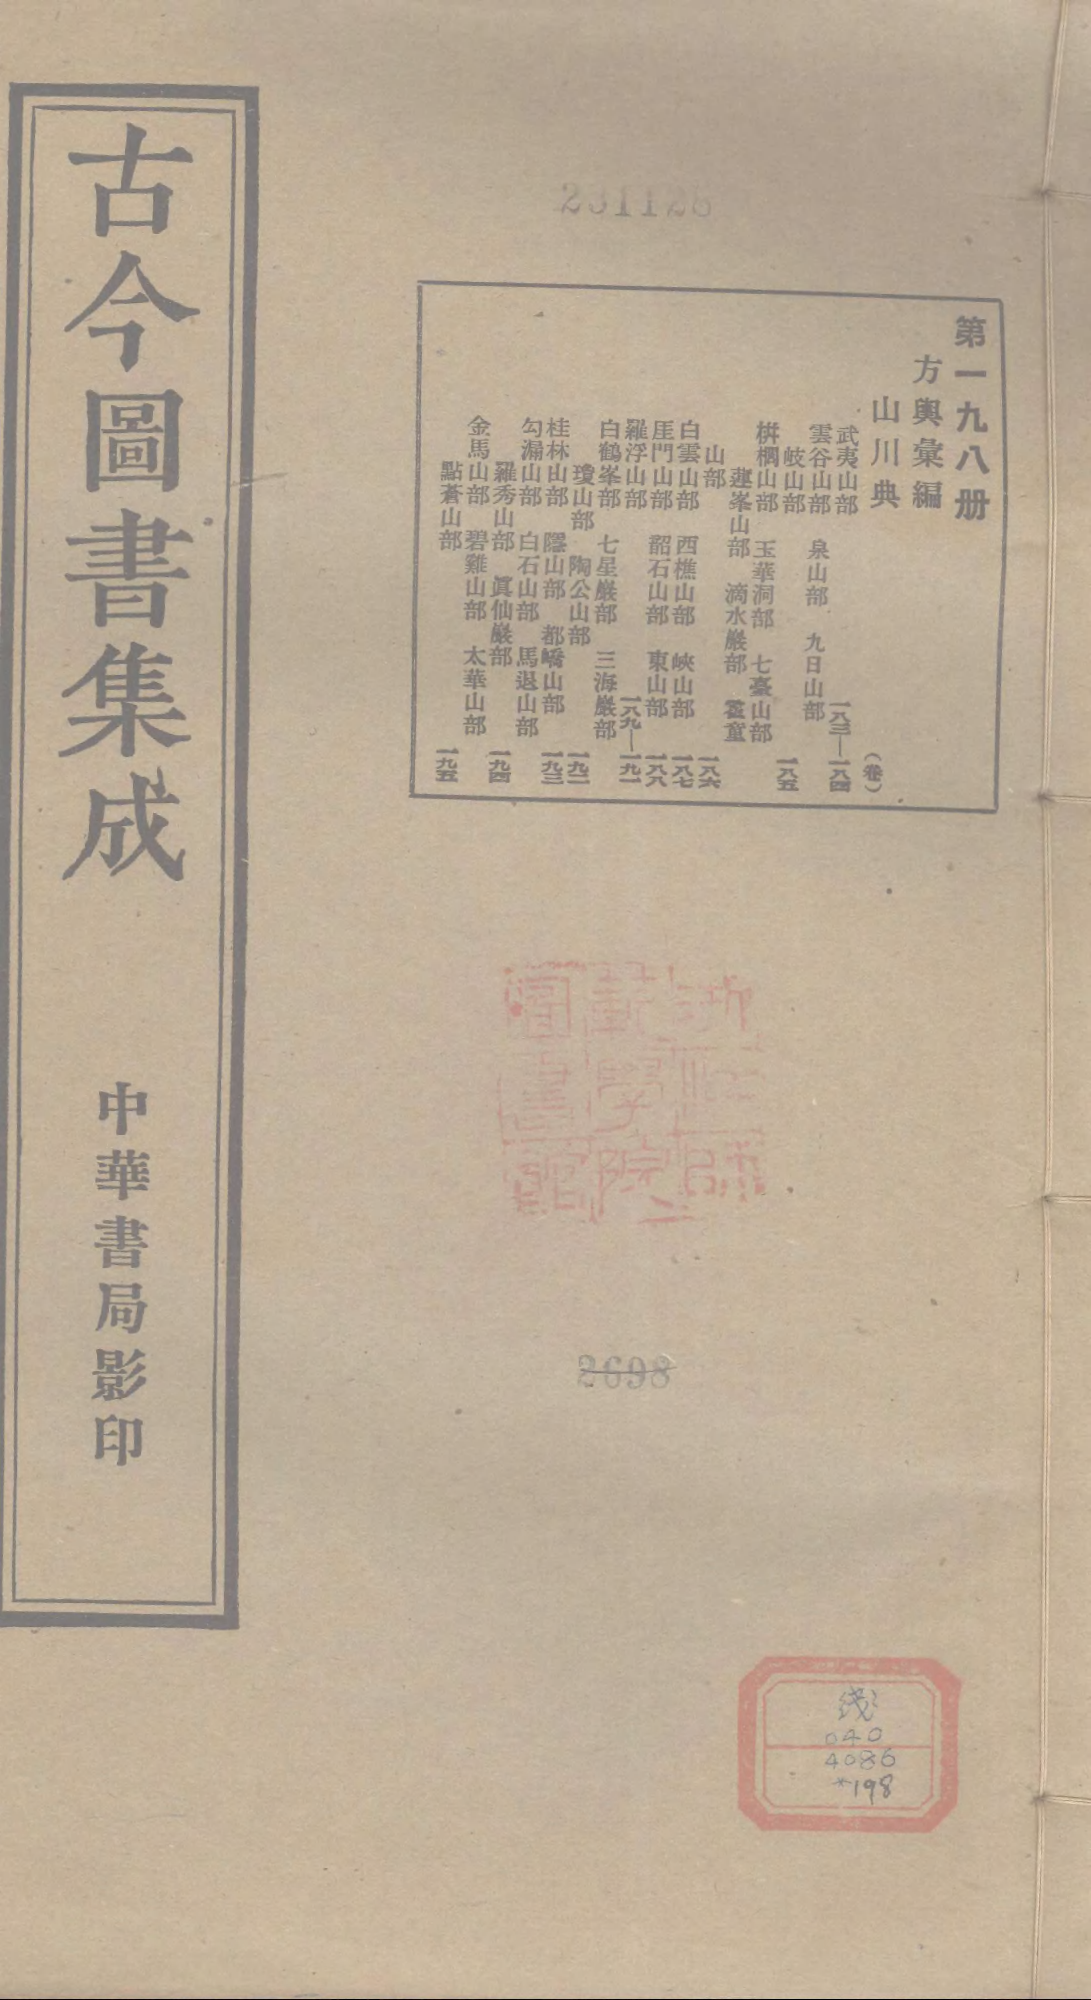 231128
第一九八册
方輿彙編
山川典
(卷)
武夷山部 一八三—一八四
雲谷山部 泉山部 九日山部
岐山部 一八五
栟櫚山部 玉華洞部 七臺山部
蓮峯山部 滴水巖部 霍童
山部 一八六
白雲山部 西樵山部 峽山部 一八七
厓門山部 韶石山部 東山部 一八八
羅浮山部 一八九—一九一
白鶴峯部 七星巖部 三海巖部
瓊山部 陶公山部 一九二
桂林山部 隱山部 都嶠山部 一九三
勾漏山部 白石山部 馬退山部
羅秀山部 眞仙巖部 一九四
金馬山部 碧雞山部 太華山部
點蒼山部 一九五
古今圖書集成
中華書局影印
浙江師
範學院
圖書館
2698
线
040
4086
*198